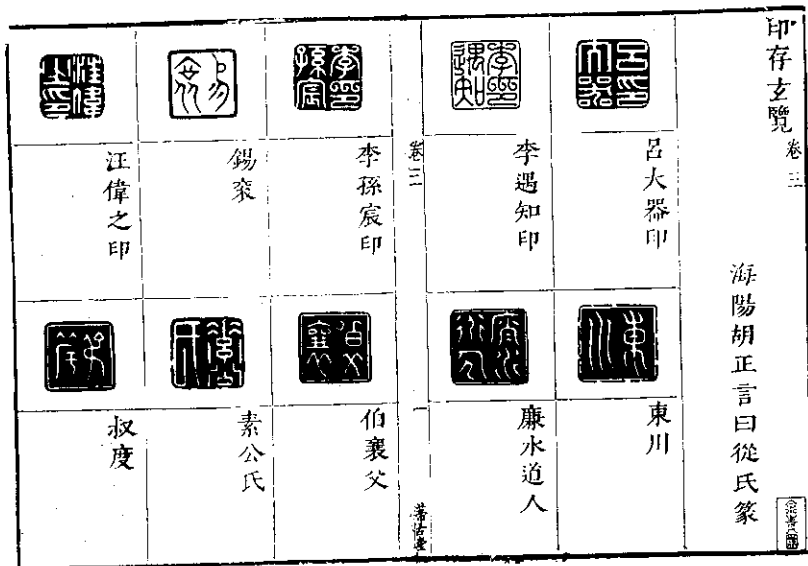 印存玄覽 卷三
海陽胡正言曰從氏篆
呂大器印
東川
李遇知印
廉水道人
卷三
一
李孫宸印
伯襄父
錫袞
素公氏
汪偉之印
叔度